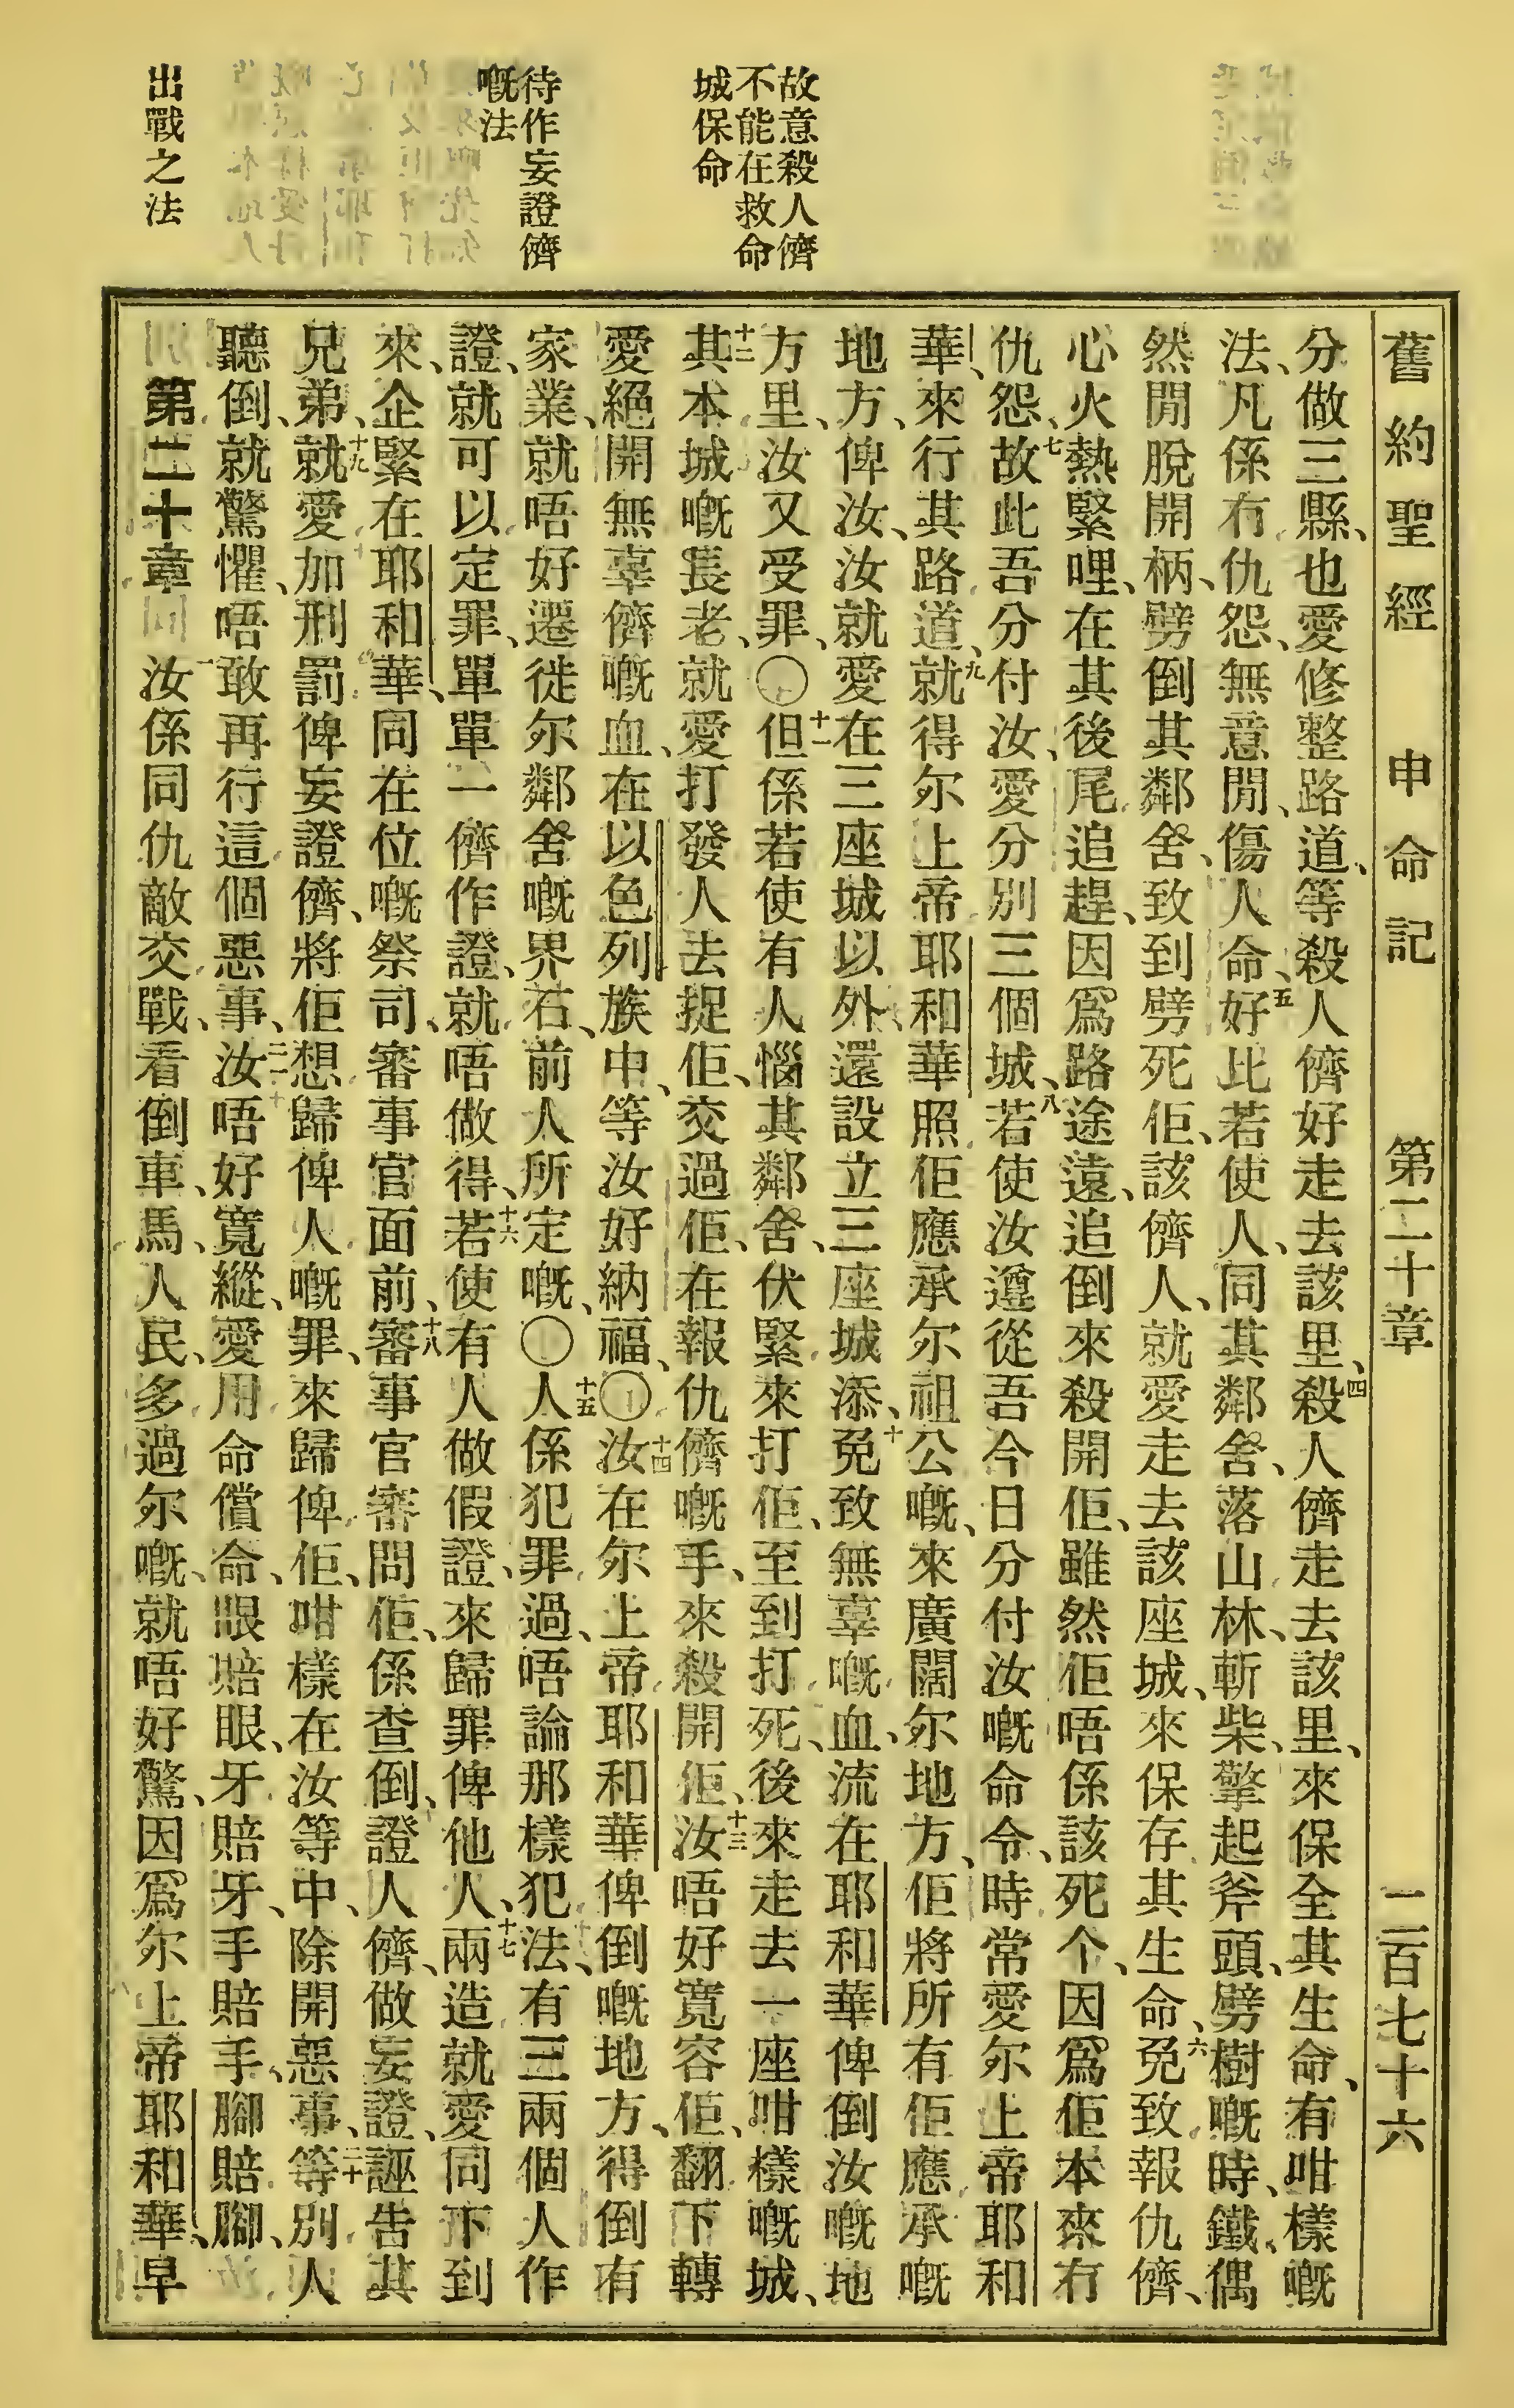 舊約聖經 申命記 第二十章 二百七十六
故意殺人儕
不能在救命
城保命
待作妄證儕
嘅法
出戰之法
分做三縣、也愛修整路道、等殺人儕好走去該里、四殺人儕走去該里、來保全其生命、有咁樣嘅
法、凡係冇仇怨、無意閒、傷人命、五好比若使人、同其鄰舍、落山林、斬柴、擎起斧頭、劈樹嘅時、鐵偶
然閒脫開柄、劈倒其鄰舍、致到劈死佢、該儕人、就愛走去該座城、來保存其生命、六免致報仇儕、
心火熱緊哩、在其後尾追趕、因爲路途遠、追倒來殺開佢、雖然佢唔係該死个、因爲佢本來冇
仇怨、七故此吾分付汝、愛分別三個城、八若使汝遵從吾今日分付汝嘅命令、時常愛尔上帝耶和
華、來行其路道、九就得尔上帝耶和華照佢應承尔祖公嘅、來廣闊尔地方、佢將所有佢應承嘅
地方、俾汝、汝就愛在三座城以外、還設立三座城添、十免致無辜嘅血、流在耶和華俾倒汝嘅地
方里、汝又受罪、〇十一但係若使有人惱其鄰舍、伏緊來打佢、至到打死、後來走去一座咁樣嘅城、
十二其本城嘅長老、就愛打發人去捉佢、交過佢、在報仇儕嘅手、來殺開佢、十三汝唔好寬容佢、翻下轉
愛絕開無辜儕嘅血、在以色列族中、等汝好納福、〇十四汝在尔上帝耶和華俾倒嘅地方、得倒有
家業、就唔好遷徙尔鄰舍嘅界石、前人所定嘅、〇十五人係犯罪過、唔論那樣犯法、有三兩個人作
證、就可以定罪、單單一儕作證、就唔做得、十六若使有人做假證、來歸罪俾他人、十七兩造就愛同下到
來、企緊在耶和華、同在位嘅祭司、審事官面前、十八審事官審問佢、係查倒、證人儕、做妄證、誣告其
兄弟、十九就愛加刑罰俾妄證儕、將佢想歸俾人嘅罪、來歸俾佢、咁樣在汝等中、除開惡事、二十等別人
聽倒、就驚懼、唔敢再行這個惡事、二一汝唔好寬縱、愛用命償命、眼賠眼、牙賠牙、手賠手、腳賠腳、
第二十章 一汝係同仇敵交戰、看倒車、馬、人民、多過尔嘅、就唔好驚、因爲尔上帝耶和華、早